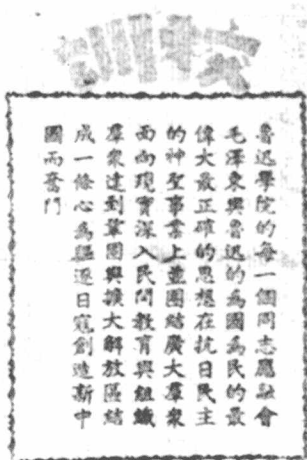 魯迅學院的每一個同志應融會
毛澤東與魯迅的為國為民的最
偉大最正確的思想在抗日民主
的神聖事業上並團結廣大羣衆
面向現實深入民間教育與組織
羣衆達到鞏固與擴大解放區結
成一條心為驅逐日寇創造新中
國而奮鬥